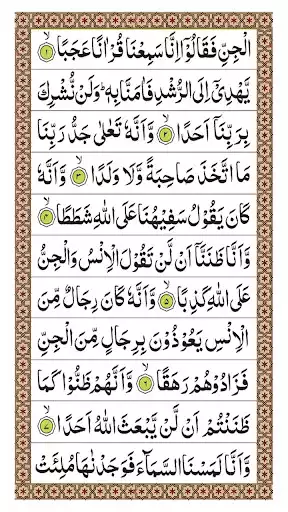 الْجِنِّ فَقَالُوْۤا اِنَّا سَمِعْنَا قُرْاٰنًا عَجَبًا ۙ﴿۱﴾
يَّهْدِيْۤ اِلَى الرُّشْدِ فَاٰمَنَّا بِهٖ ؕ وَلَنْ نُّشْرِكَ
بِرَبِّنَاۤ اَحَدًا ۙ﴿۲﴾ وَّاَنَّهٗ تَعٰلٰى جَدُّ رَبِّنَا
مَا اتَّخَذَ صَاحِبَةً وَّلَا وَلَدًا ۙ﴿۳﴾ وَّاَنَّهٗ
كَانَ يَقُوْلُ سَفِيْهُنَا عَلَى اللّٰهِ شَطَطًا ۙ﴿۴﴾
وَّاَنَّا ظَنَنَّاۤ اَنْ لَّنْ تَقُوْلَ الْاِنْسُ وَالْجِنُّ
عَلَى اللّٰهِ كَذِبًا ۙ﴿۵﴾ وَّاَنَّهٗ كَانَ رِجَالٌ مِّنَ
الْاِنْسِ يَعُوْذُوْنَ بِرِجَالٍ مِّنَ الْجِنِّ
فَزَادُوْهُمْ رَهَقًا ۙ﴿۶﴾ وَّاَنَّهُمْ ظَنُّوْا كَمَا
ظَنَنْتُمْ اَنْ لَّنْ يَّبْعَثَ اللّٰهُ اَحَدًا ۙ﴿۷﴾
وَّاَنَّا لَمَسْنَا السَّمَآءَ فَوَجَدْنٰهَا مُلِئَتْ